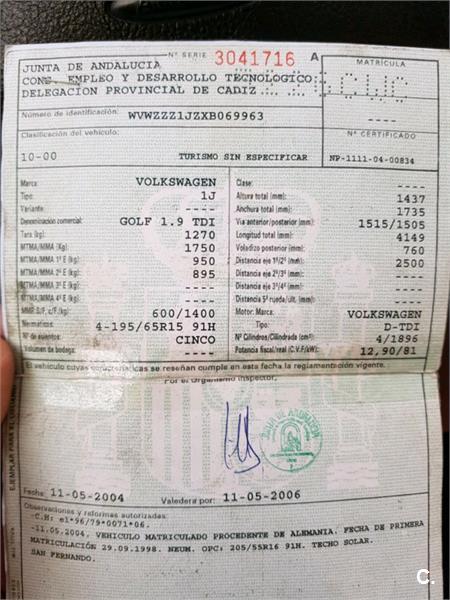 Nº SERIE 3041716 A
JUNTA DE ANDALUCIA
CONS. EMPLEO Y DESARROLLO TECNOLOGICO
DELEGACION PROVINCIAL DE CADIZ
MATRÍCULA
CWC
----
Número de identificación: WVWZZZ1JZXB069963
Clasificación del vehículo:
Nº CERTIFICADO
10-00 TURISMO SIN ESPECIFICAR NP-1111-04-00834
Marca: VOLKSWAGEN
Tipo: 1J
Variante: ----
Denominación comercial: GOLF 1.9 TDI
Tara (kg): 1270
MTMA/MMA (Kg): 1750
MTMA/MMA 1º E (kg): 950
MTMA/MMA 2º E (kg): 895
MTMA/MMA 3º E (kg): ----
MTMA/MMA 4º E (kg): ----
MMR S/F, c/F.(kg): 600/1400
Neumáticos: 4-195/65R15 91H
Nº de asientos: CINCO
Volumen de bodega: ----
Clase: ----
Altura total (mm): 1437
Anchura total (mm): 1735
Vía anterior/posterior (mm): 1515/1505
Longitud total (mm): 4149
Voladizo posterior (mm): 760
Distancia eje 1º/2º (mm): 2500
Distancia eje 2º/3º (mm): ----
Distancia eje 3º/4º (mm): ----
Distancia 5ª rueda/ult. (mm): ----
Motor: Marca: VOLKSWAGEN
Tipo: D-TDI
Nº Cilindros/Cilindrada (cm³): 4/1896
Potencia fiscal/real (C.V.F/kW): 12,90/81
El vehículo cuyas características se reseñan cumple en esta fecha la reglamentación vigente.
Por el Organismo Inspector,
JUNTA DE ANDALUCIA
Fecha: 11-05-2004 Valedera por: 11-05-2006
Observaciones y reformas autorizadas:
-C.H: e1*96/79*0071*06.
-11.05.2004, VEHICULO MATRICULADO PROCEDENTE DE ALEMANIA. FECHA DE PRIMERA
MATRICULACIÓN 29.09.1998. NEUM. OPC: 205/55R16 91H. TECHO SOLAR.
SAN FERNANDO.
EJEMPLAR PARA EL
C.